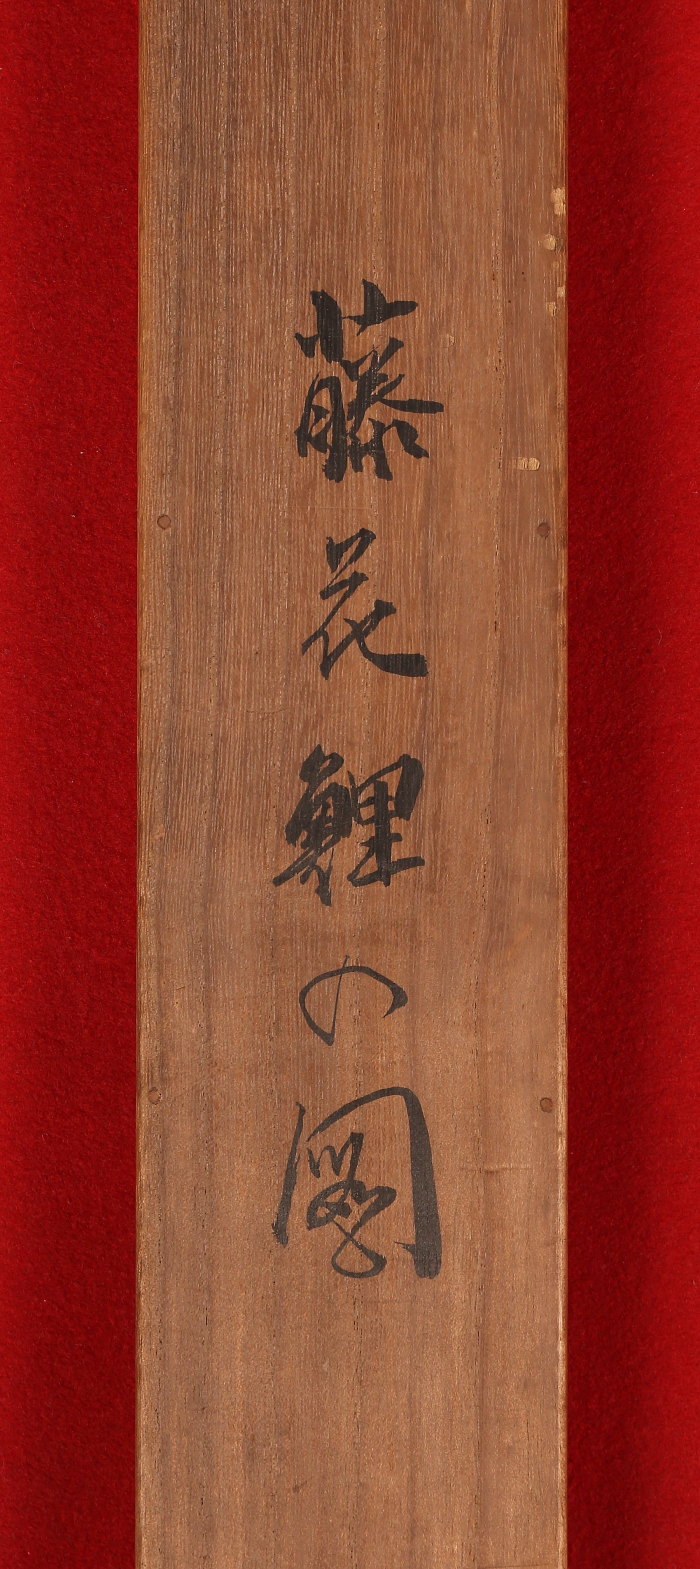 藤花鯉の図